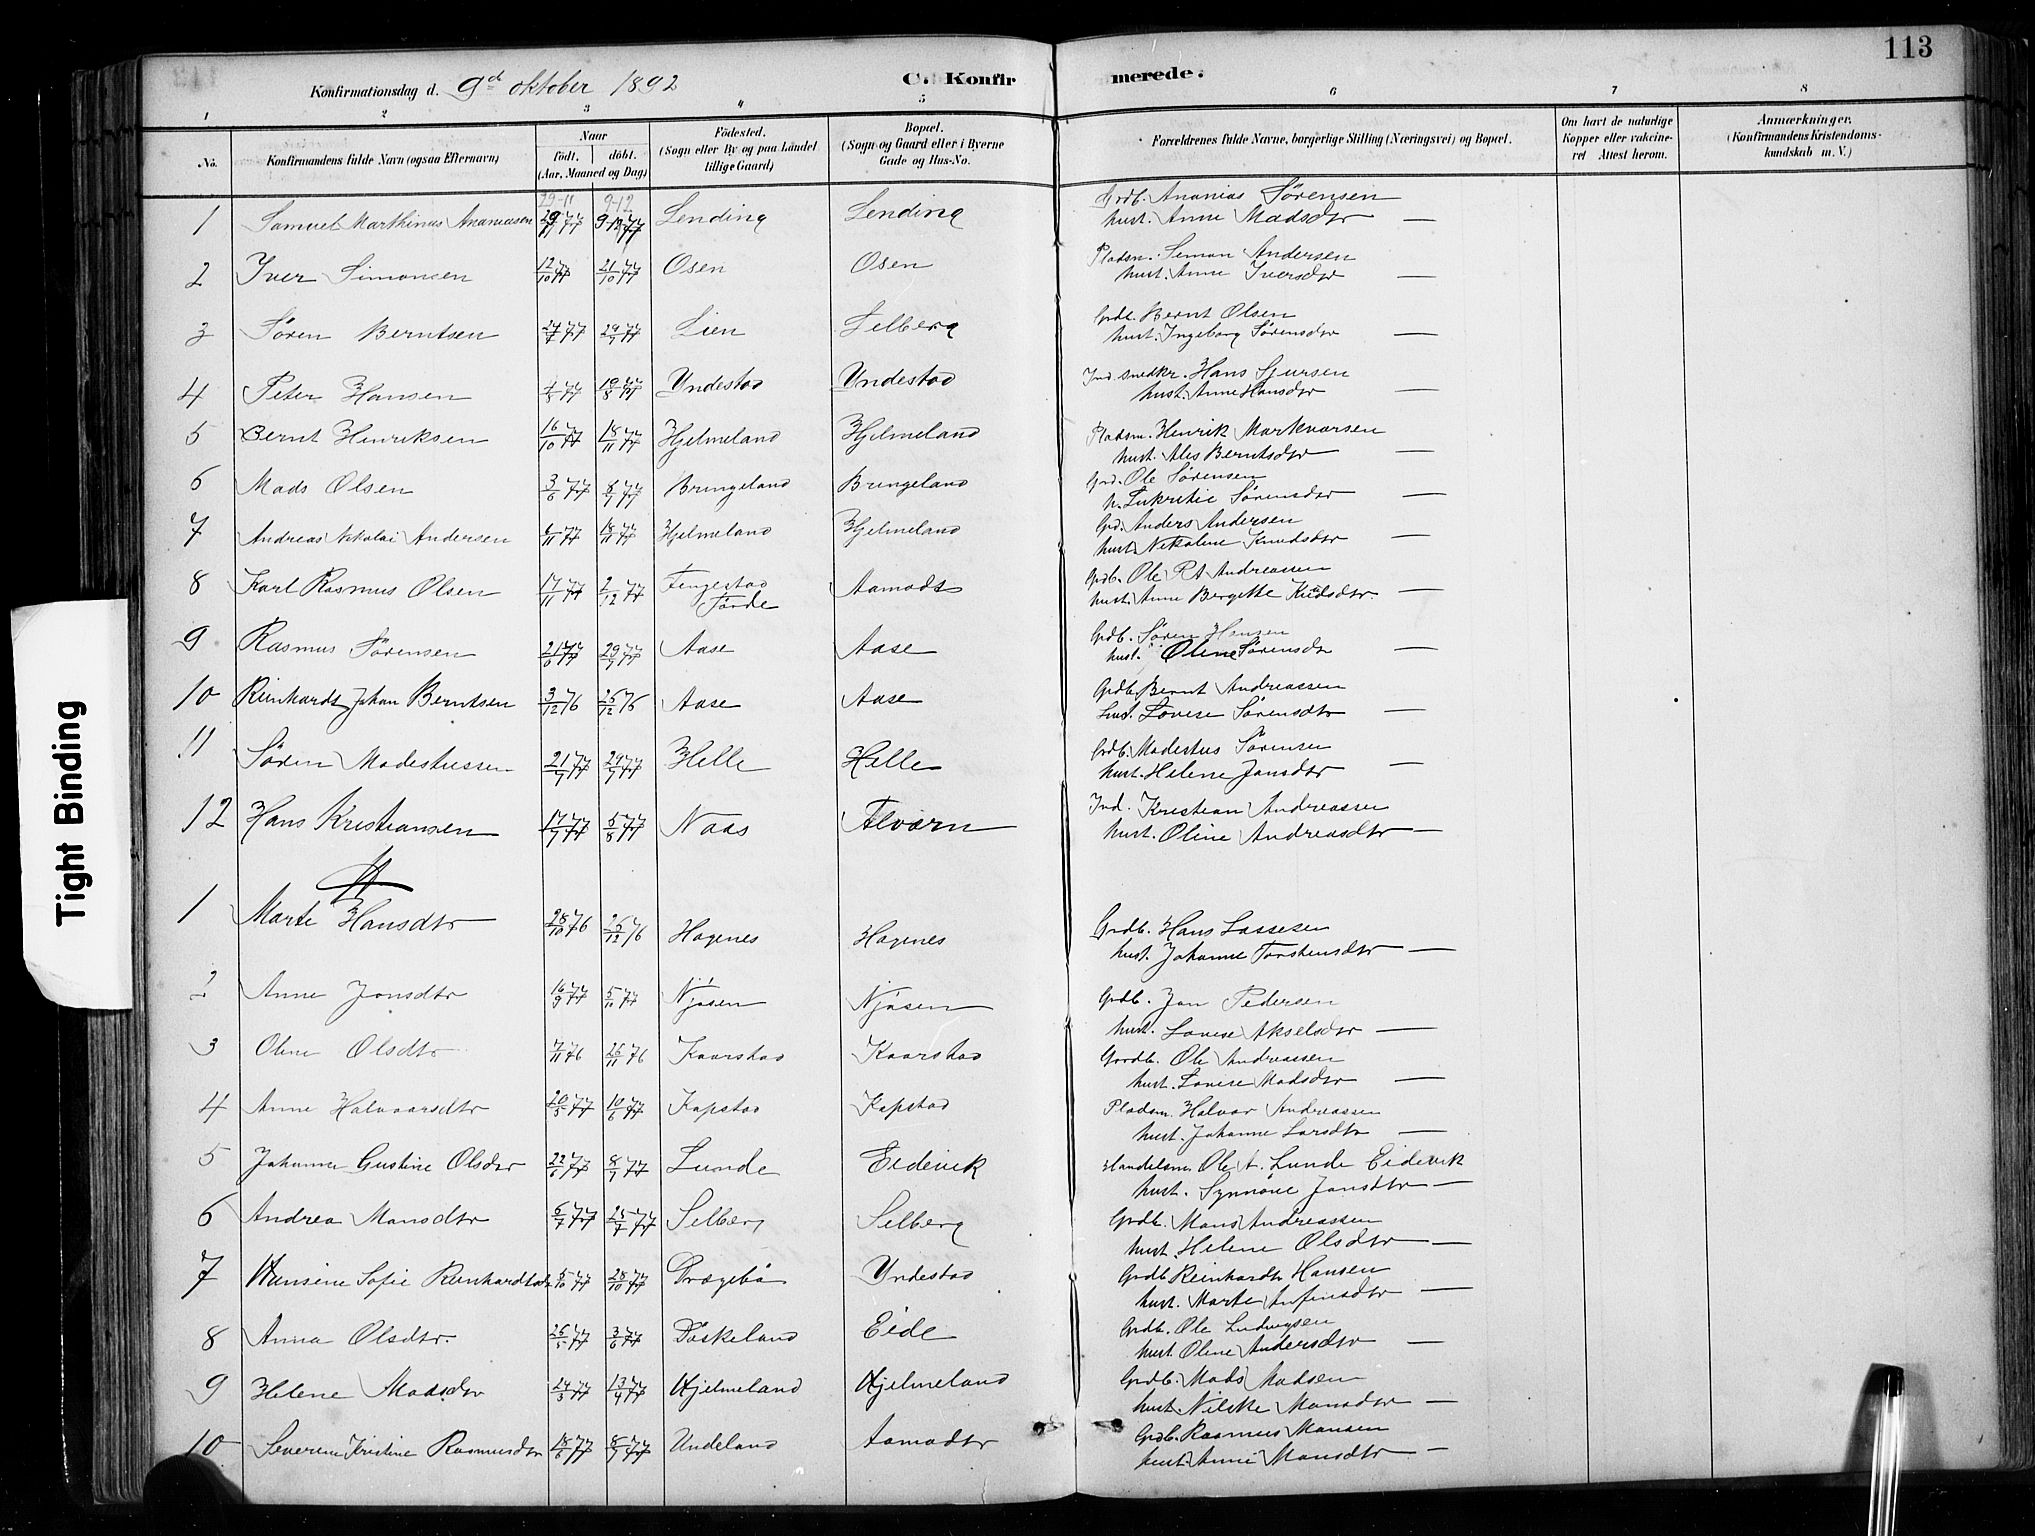 113
Konfirmationsdag d. 9d oktober 1892 C. Konfirmerede.
1 2 3 4 5 6 7 8
No. Konfirmandens fulde Navn (ogsaa Efternavn) Naar født. døbt. (Aar, Maaned og Dag) Fødested. (Sogn eller By og paa Landet tillige Gaard) Bopæl. (Sogn og Gaard eller i Byerne Gade og Hus-No. Forældrenes fulde Navne, borgerlige Stilling (Næringsvei) og Bopæl. Om havt de naturlige Kopper eller vakcineret Attest herom. Anmærkninger. (Konfirmandens Kristendomskundskab m. V.)
29-11 9-12
1 Samuel Marthinus Ananiasen 29/11 77 9-12 77 Lending Lending Grdb. Ananias Sørensen
hust. Anne Madsdtr —
2 Iver Simonsen 12/10 77 21/10 77 Osen Osen Pladsm. Simon Andersen
hust. Anne Iversdtr —
3 Søren Berntsen 24/7 77 29/7 77 Lien Selberg Grdb. Bernt Olsen
hust. Ingeborg Sørensdtr —
4 Peter Hansen 77 19/8 77 Yndestad Yndestad Ind. snedkr. Hans Sjursen
hust. Anne Hansdtr —
5 Bernt Henriksen 16/10 77 18/11 77 Hjelmeland Hjelmeland Pladsm. Henrik Markvarsen
hust. Ales Berntsdtr —
6 Mads Olsen 3/6 77 8/7 77 Bringeland Bringeland Grd. Ole Sørensen
h. Lukritie Sørensdtr —
7 Andreas Nikolai Andersen 6/11 77 18/11 77 Hjelmeland Hjelmeland Grd. Anders Andersen
hust. Nikoline Knudsdtr —
8 Karl Rasmus Olsen 17/11 77 2/12 77 Fengestad Førde Aamodt Grdb. Ole R A Andreassen
hust. Anne Bergitte Knudsdtr. —
9 Rasmus Sørensen 21/6 77 29/7 77 Aase Aase Grdb. Søren Hansen
hust. Oline Sørensdtr —
10 Reinhardt Johan Berntsen 3/12 76 25/12 76 Aase Aase Grdb. Bernt Andreassen
hust. Lovise Sørensdtr —
11 Søren Modestussen 21/7 77 29/7 77 Helle Helle Grdb. Modestus Sørensen
hust. Helene Jonsdtr —
12 Hans Kristiansen 17/7 77 5/8 77 Naas Alværn Ind. Kristian Andreassen
hust. Oline Andreasdtr —
1 Marte Hansdtr 28/10 76 25/12 76 Hagenes Hagenes Grdb. Hans Lassesen
hust. Johanne Torstensdtr —
2 Anne Jonsdtr 16/9 77 5/10 77 Njøsen Njøsen Grdb. Jon Pedersen
hust. Lovise Akselsdtr —
3 Oline Olsdtr 7/11 76 26/11 76 Kaarstad Kaarstad Gardb. Ole Andreassen
hust. Lovise Madsdtr —
4 Anne Halvaarsdtr 20/5 77 10/6 77 Kapstad Kapstad Pladsm. Halvor Andreassen
hust. Johanne Larsdtr —
5 Johanne Gustine Olsdtr 22/6 77 8/7 77 Lunde Eidevik Handelsm. Ole A. Lunde Eidevik
hust. Synnøve Jonsdtr —
6 Andrea Monsdtr 6/7 77 25/7 77 Selberg Selberg Grdb. Mons Andreassen
hust. Helene Olsdtr —
7 Hansine Sofie Reinhardtsdtr 5/10 77 28/10 77 Drægebø Yndestad Grdb Reinhardt Hansen
hust. Marte Anfinsdtr —
8 Anna Olsdtr. 26/5 77 3/6 77 Døskeland Eide Grdb. Ole Ludvigsen
hust Oline Andersdtr —
9 Helene Madsdtr 24/3 77 13/4 77 Hjelmeland Hjelmeland Grdb. Mads Madsen
hust. Nilske Monsdtr —
10 Severine Kristine Rasmusdtr 18/6 77 8/7 77 Undeland Aamodt Grdb. Rasmus Monsen
hust. Anne Monsdtr —
Tight Binding